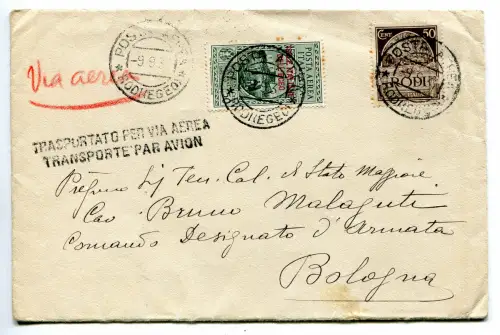 Via aerea
POSTE
-9.9.3
RODI(EGEO)
POSTA AEREA
CENT 50
RODI
TRASPORTATO PER VIA AEREA
TRANSPORTE PAR AVION
Pregmo Sig Ten. Col. di Stato Maggiore
Cav Bruno Malaguti
Comando Designato d'Armata
Bologna